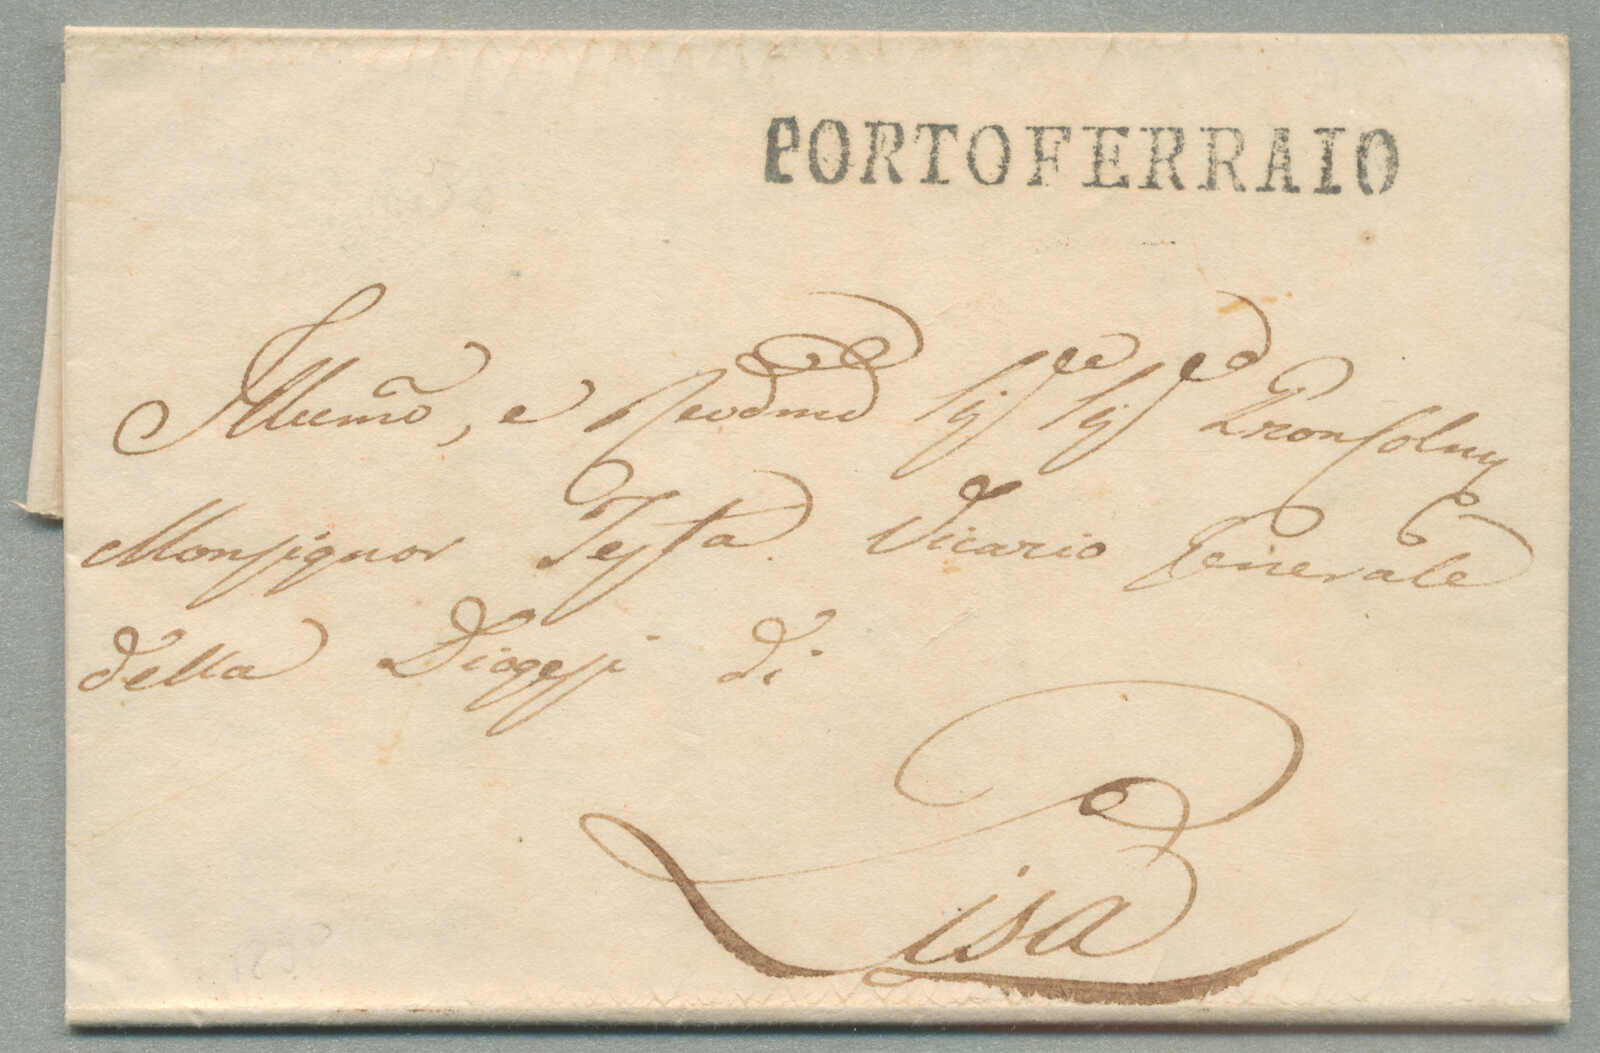 PORTOFERRAIO
Illumõ, e Revdmõ Sigr Sigr Pron Colmo
Monsignor Testa Vicario Generale
della Diogesi di
Pisa